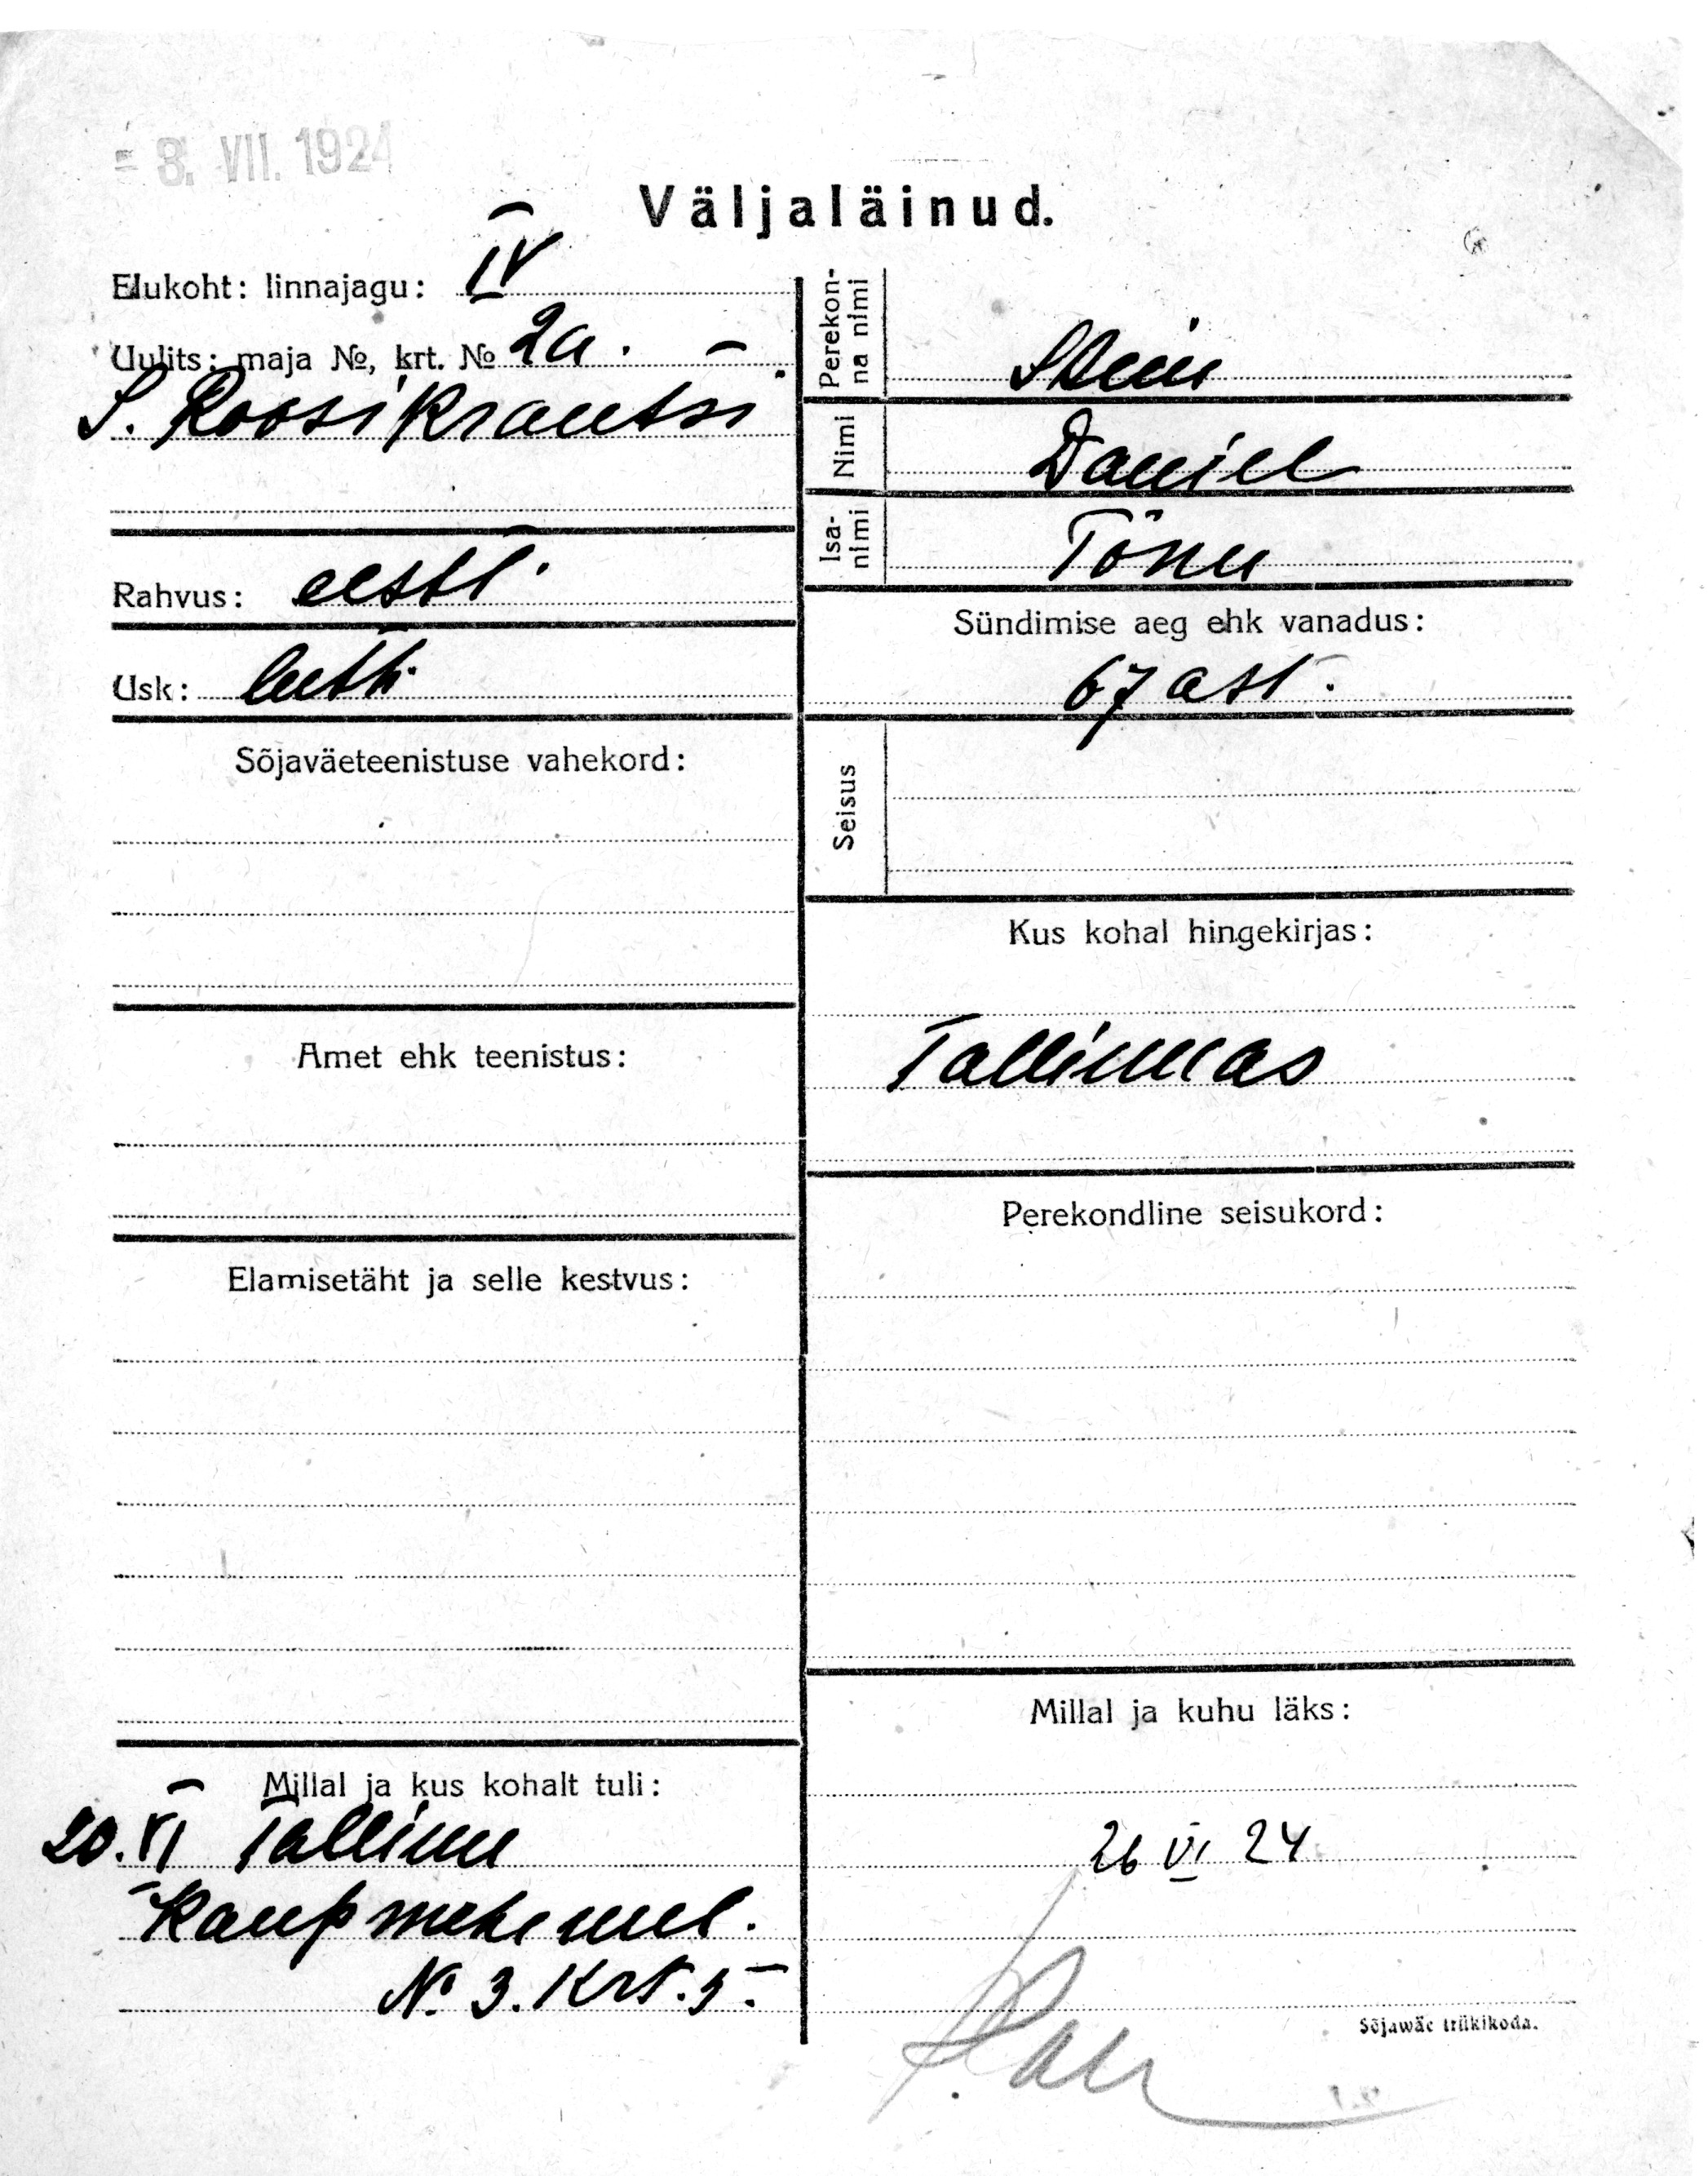 - 3. VII. 1924
Väljaläinud.
Elukoht: linnajagu: IV
Uulits: maja №, krt. № 2a. –
S. Roosikrantsi
Rahvus: eesti
Usk: lutti.
Sõjaväeteenistuse vahekord:
Amet ehk teenistus:
Elamisetäht ja selle kestvus:
Millal ja kus kohalt tuli:
20. VI Tallinn
Kaupmehe uul.
№ 3. Krt. 5.
Perekon-
na nimi
Stein
Nimi
Daniel
Isa-
nimi
Tõnu
Sündimise aeg ehk vanadus:
67 ast.
Seisus
Kus kohal hingekirjas:
Tallinnas
Perekondline seisukord:
Millal ja kuhu läks:
26 VI 24
Sõjawäe trükikoda.